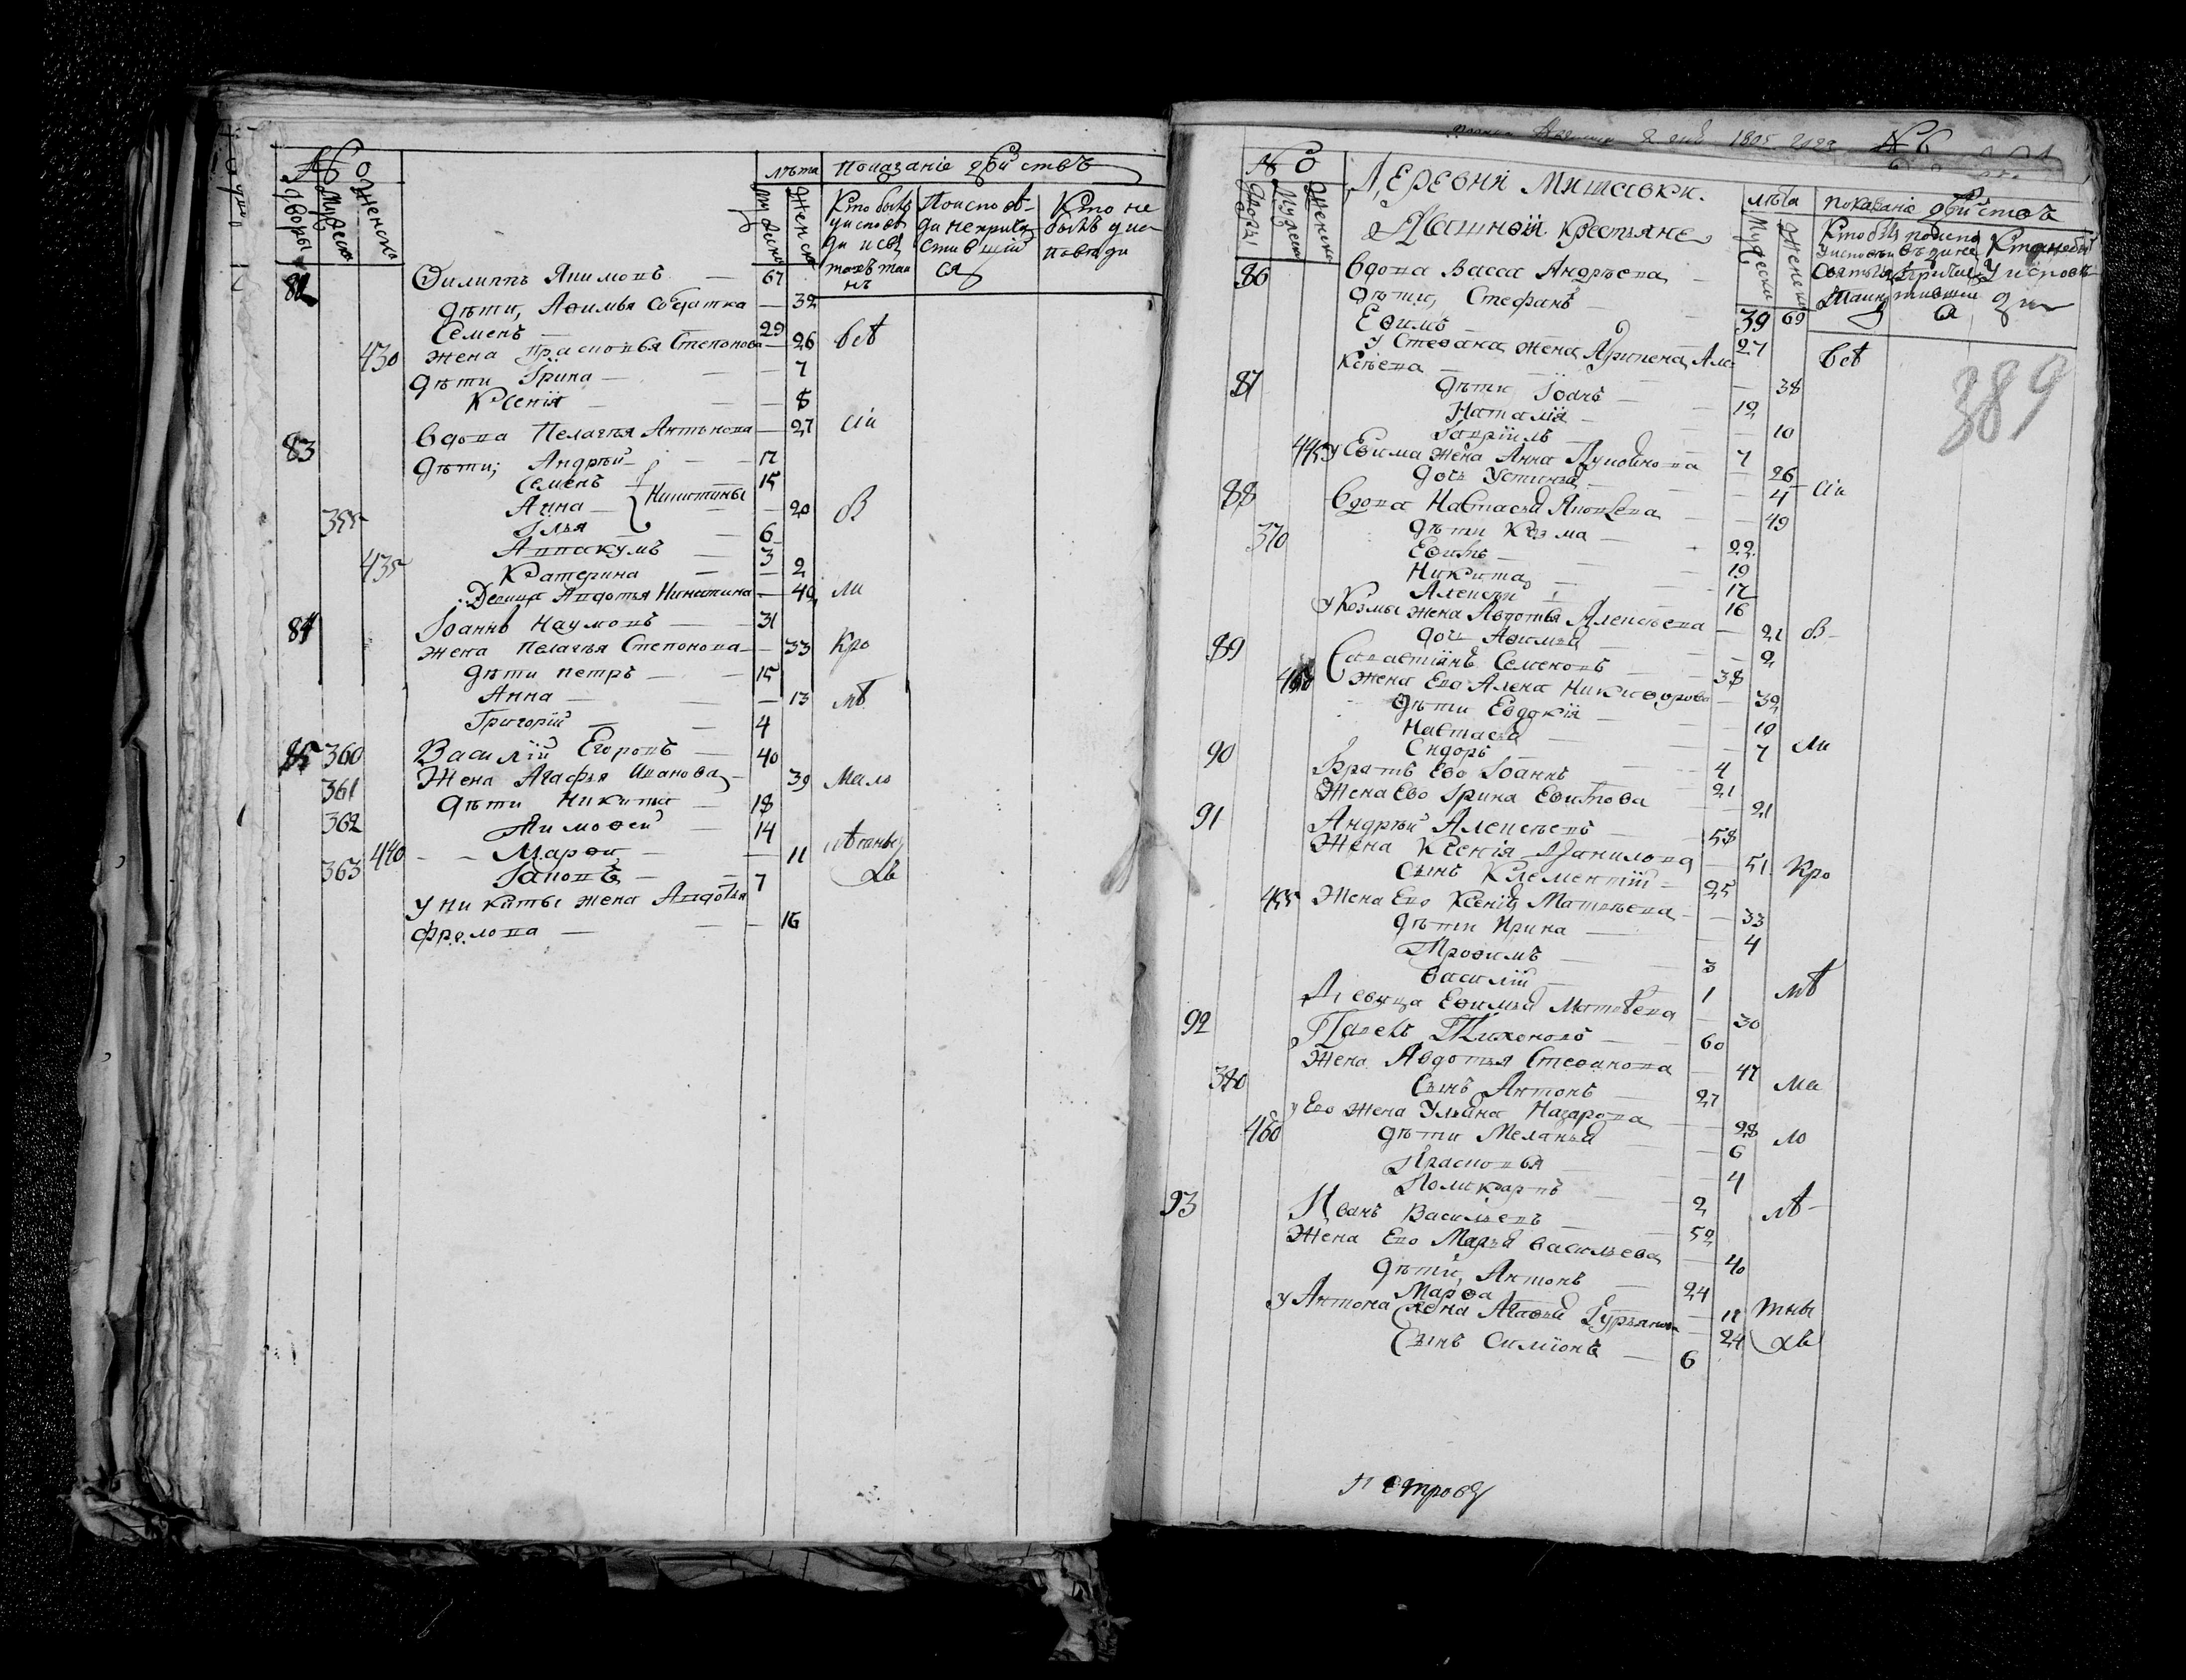 №
дворы Мужеска Женска
лѣта Показаніе дѣйствъ
Мужеска Женска
Кто былъ у исповѣди и свя тыхъ таинъ
По исповѣди не причастившійся
Кто не былъ у исповѣди
82 Филиппъ Якимовъ — 67
дѣти, Афимья Солдатка — 32
Семенъ — 29
430 жена Прасковья Степонова — 26 всѣ
дѣти Ірина — 7
Ксенія — 5
83 вдова Пелагѣя Антонова — 27 сіи
дѣти; Андрѣй — 17
Семенъ — 15
Анна — Никитины — 20 в
355 Илья — 6
Аввакумъ — 3
435 Катерина — 2
Девица Авдотья Никитина — 40 ли
84 Іоаннъ Наумовъ — 31
жена Пелагѣя Степонова — 33 Кро
дѣти петръ — 15
Анна — 13 мѣ
Григорій — 4
85 360 Василій Егоровъ — 40
361 Жена Агафья Иванова — 39 Мало
362 дѣти Никита — 18
Тимофей — 14
440 Марфа — 11 лѣтныхъ
363 Іаковъ — 7
у Никиты жена Авдотья
Фролова — 16
1805
389
№
Дворы Мужеска Женска
Деревни Мишавки.
Пашнои Крестьяне
лѣта показаніе дѣйствъ
Мужеска Женска
86 вдова Васса Андрѣева — 69
дѣти, Стефанъ — 39
Ефимъ — 27
у Стефана жена Агрипена Але
ксѣева — 38 всѣ
87 дѣти Іоанъ — 12
Наталія — 10
Гаврiилъ — 7
445 у Ефима жена Анна Лукоянова — 26
дочь Устинья — 4 сіи
88 вдова Настасья Яковлева — 49
370 дѣти Козма — 22
Ефимъ — 19
Никита — 17
Алексѣй — 16
у Козмы жена Авдотья Алексѣева — 21 в
дочь Афимья — 2
89 Савастіянъ Семеновъ — 38
450 жена Ево Алена Никифорова — 32
дѣти Евдокія — 10
Настасья — 7 ли
Сидоръ — 4
90 Братъ Ево Іоаннъ — 21
Жена Ево Ірина Ефимова — 21
91 Андрѣй Алексѣевъ — 58
Жена Ксенія Данилова — 51 Кро
сынъ Климентій — 25
455 Жена Ево Ксенія Матвѣева — 33
дѣти Ирина — 4
Трофимъ — 3
Василій — 1 мѣ
Девица Ефимья Матвѣева — 30
92 Павелъ Тихоновъ — 60
жена Авдотья Стефанова — 47 Ма
380 Сынъ Антонъ — 27
у Ево жена Ульяна Назарова — 28 ло
460 дѣти Меланья — 6
Прасковья — 4
Поликарпъ — 2
93 Иванъ Васильевъ — 52 лѣ
Жена Ево Марья васильева — 40
дѣти, Антонъ — 24
Марфа — 11 тны
у Антона жена Агафья Гурьянова — 24 хъ
Сынъ Симіонъ — 6
петровъ